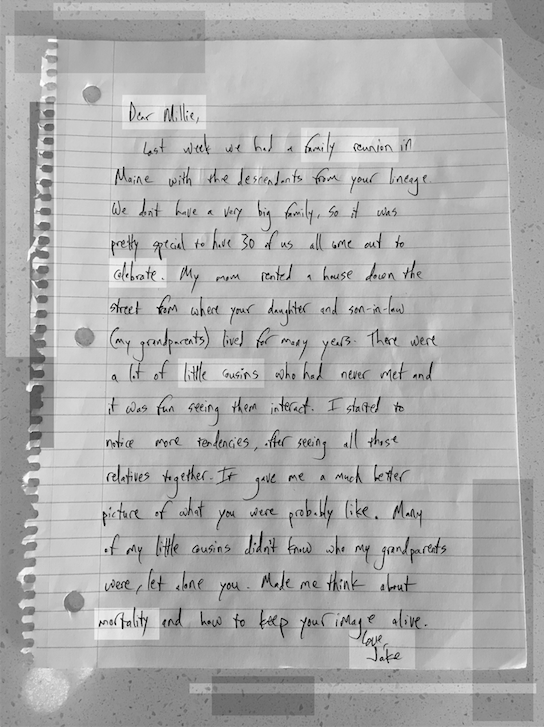 Dear Millie,
Last week we had a family reunion in
Maine with the descendants from your lineage.
We don't have a very big family, so it was
pretty special to have 30 of us all come out to
celebrate. My mom rented a house down the
street from where your daughter and son-in-law
(my grandparents) lived for many years. There were
a lot of little cousins who had never met and
it was fun seeing them interact. I started to
notice more tendencies, after seeing all those
relatives together. It gave me a much better
picture of what you were probably like. Many
of my little cousins didn't know who my grandparents
were, let alone you. Made me think about
mortality and how to keep your image alive.
Love,
Jake